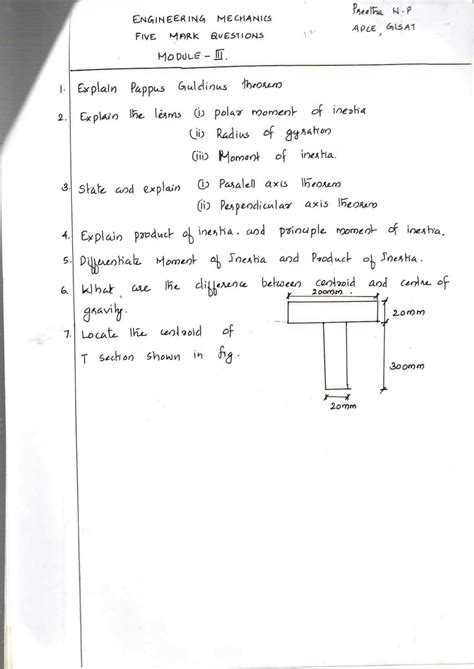 Preetha N.P
APLE, GISAT
ENGINEERING MECHANICS
FIVE MARK QUESTIONS
MODULE - III.
1. Explain Pappus Guldinus theorem
2. Explain the terms (i) polar moment of inertia
(ii) Radius of gyration
(iii) Moment of inertia.
3. State and explain (i) Paralell axis theorem
(ii) Perpendicular axis theorem
4. Explain product of inertia. and principle moment of inertia.
5. Differentiate Moment of Inertia and Product of Inertia.
6. What are the difference between centroid and centre of
gravity.
200mm.
20mm
7. Locate the centroid of
T section shown in fig.
300mm
20mm